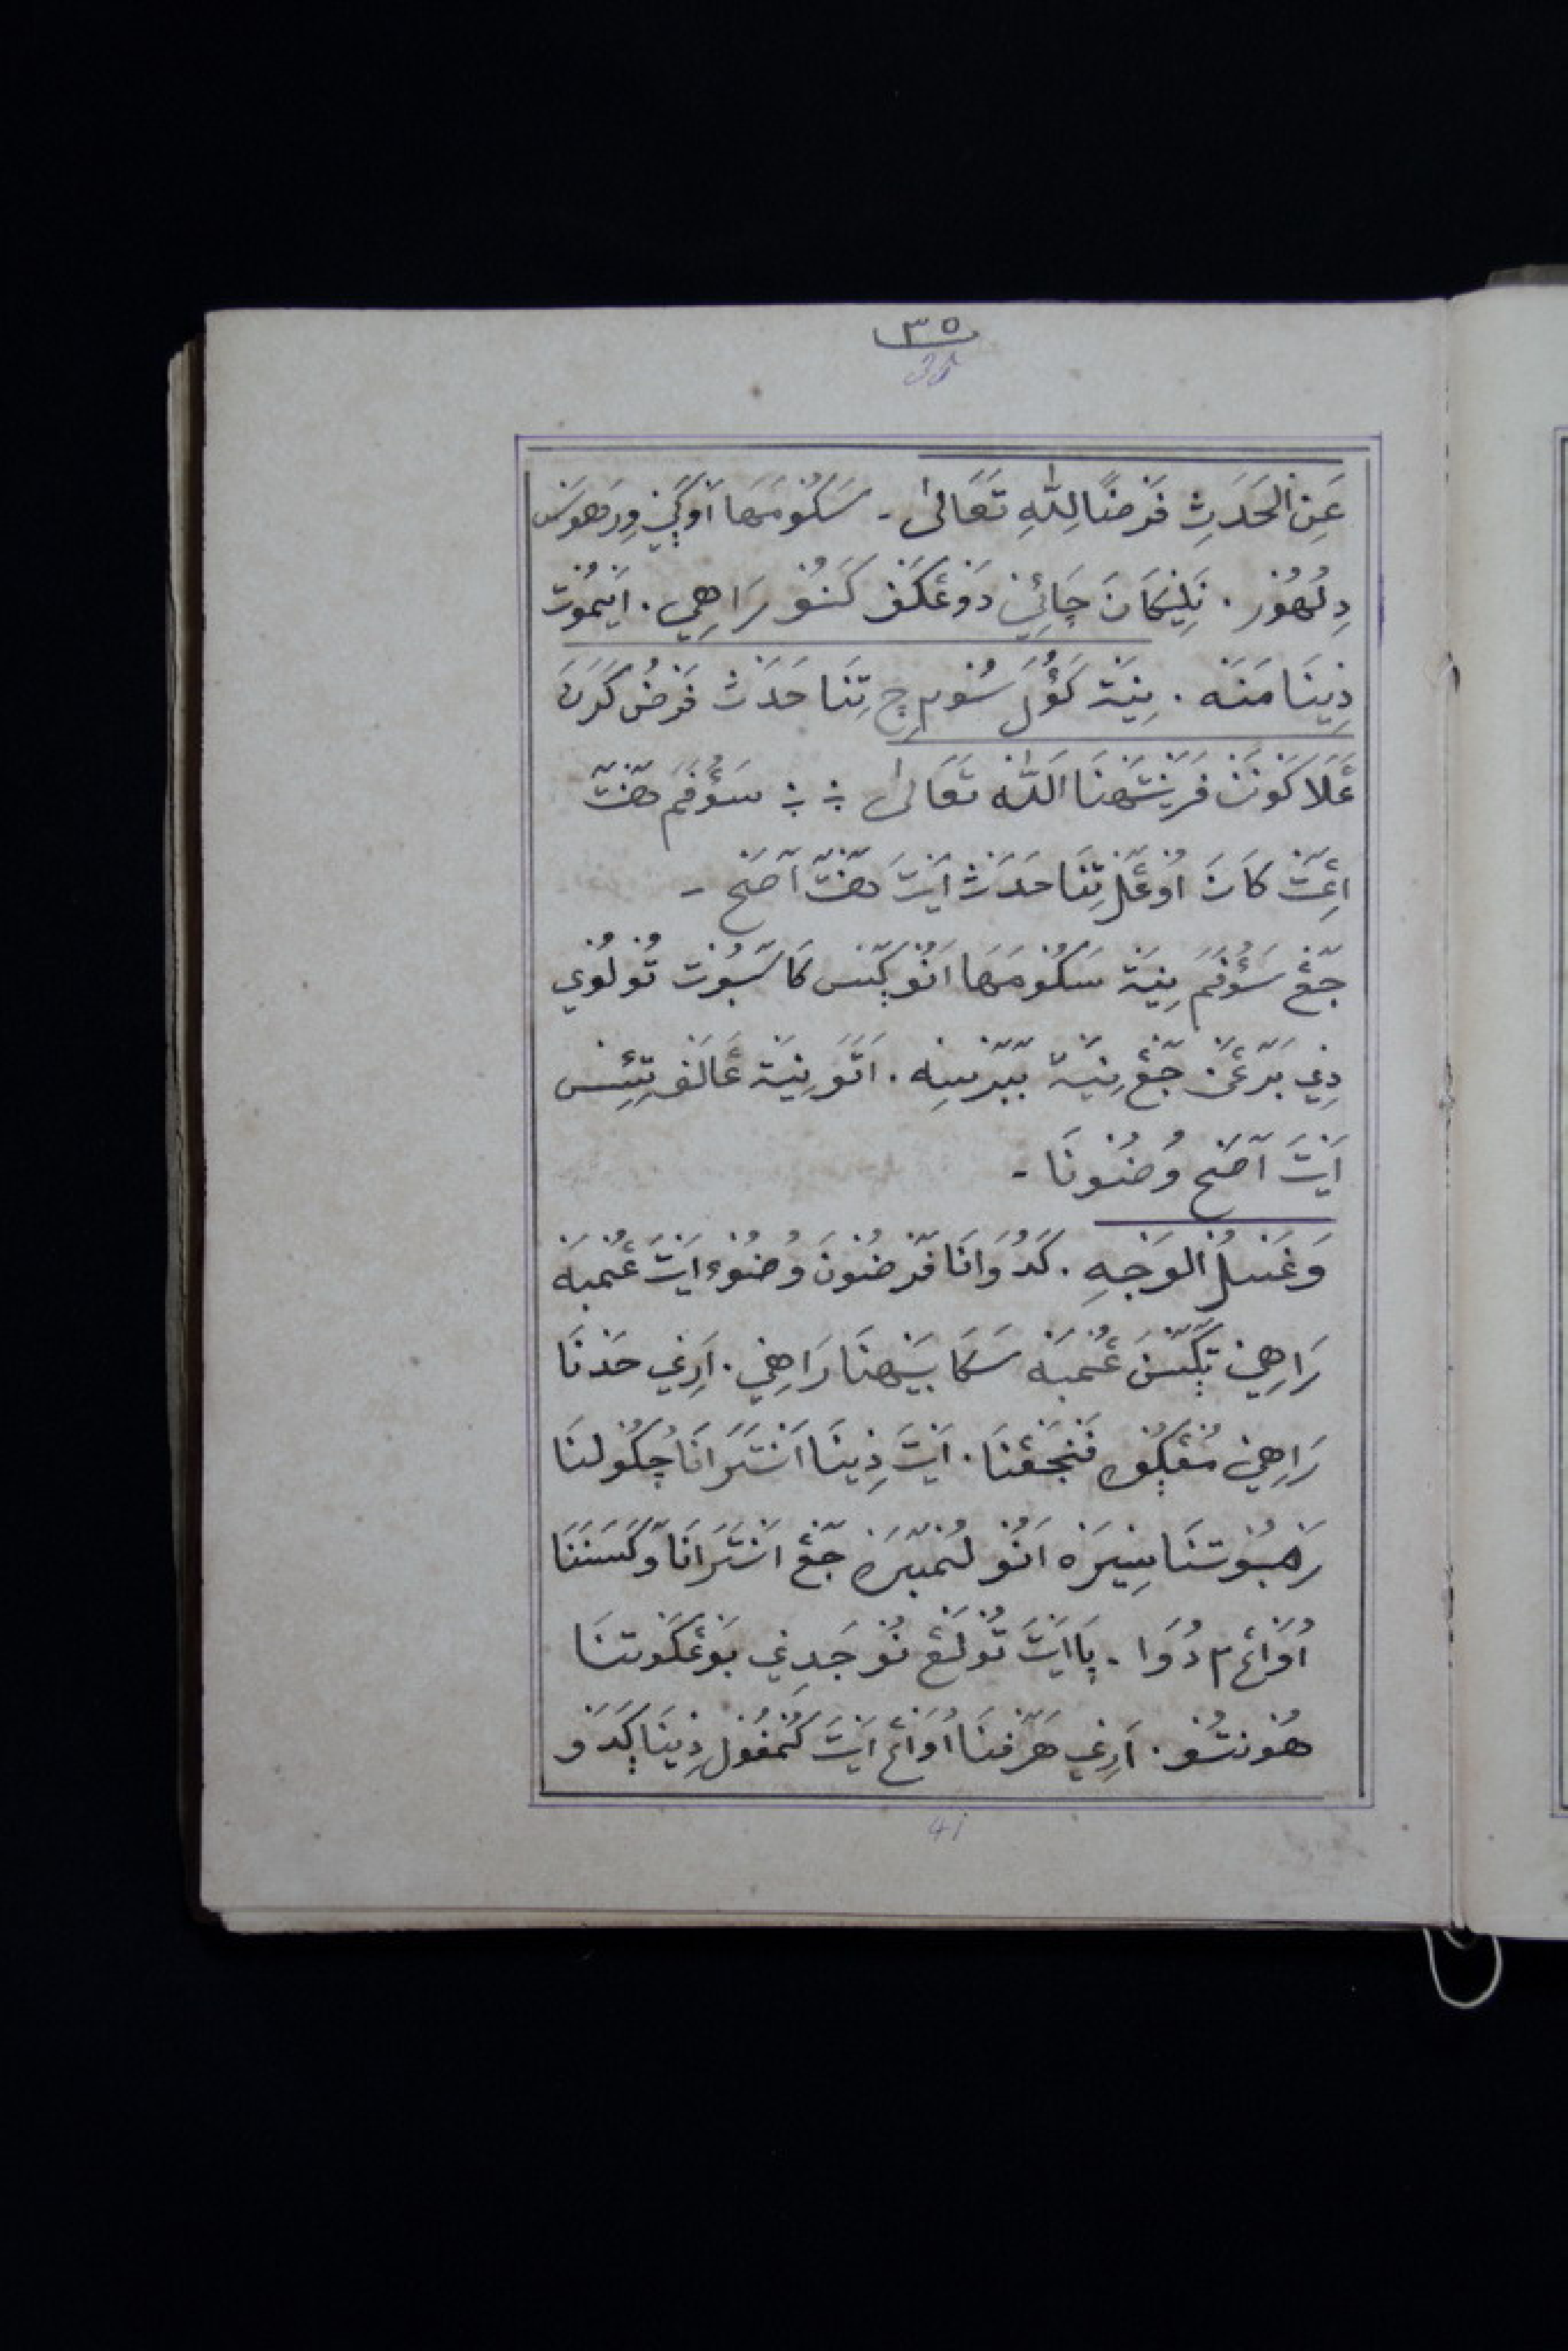 ٣٥
35
عَنِ الْحَدَثِ فَرْضًا لِلّٰهِ تَعَالىٰ - سَكُومَهَا اَوْكَيْ وِرَهوسَ
دِلُهُوْر . نَلِيْكَانَ چَائِيْ دَوْغَكَنْ كَنُوْ رَاهِي . اَيْمُوْت
ذِيْنَا مَنَه . نِيَّة كَؤُلَ سُوْم چِ تِنَا حَدَثْ فَرْضُ كَرَنَ
عَلَا كَوْنَنْ فَرِيْنْتَهْنَا اَللّٰه تَعَالىٰ سَؤُفَمَ هَنْتَ
اِغْتَ كَانَ اُوْغَلْ تِنَا حَدَثْ اَيْتَ هَنْتَ آصَح -
جَغْ سَؤُفَمَ نِيَّة سَكُومَهَا اَنُوْ كَتَسْ كَاسَبُوْت تُوْلُوْي
دِي بَرْغَنْ جَغْ نِيَّة بَبَرْسِه . اَتَوَ نِيَّة غَالَفْ تِئِسْ
اَيْتَ آصَح وُضُوْنَا -
وَغَسْلُ الْوَجْهِ . كَدُوَانَا فَرْضُوْنَ وُضُوْء اَيْتَ غُمْبَه
رَاهِيْ تَكَتَسَ غُمْبَه سَكَابَيْهْنَا رَاهِيْ . اَرِيْ حَدْنَا
رَاهِيْ مُڠْكُوْه فَنْجَڠْنَا . اَيْتَ ذِيْنَا اَنْتَرَانَا چُكُوْلنَا
رَمْبُوْتنَا سِيْرَه اَنُوْ لُمْبَرَه جَغْ اَنْتَرَانَا وَكَسَنْنَا
اُوَاغْ ٢ دُوَا . پَا اَيْتَ تُوْلَڠْ نُوْ جَدِيْ بَوْغْكَوتنَا
هُوْنتُوْ . اَرِيْ هَرْفنَا اُوَاغْ اَيْتَ كُمْفُوْل ذِيْنَا كَدَوْ
41